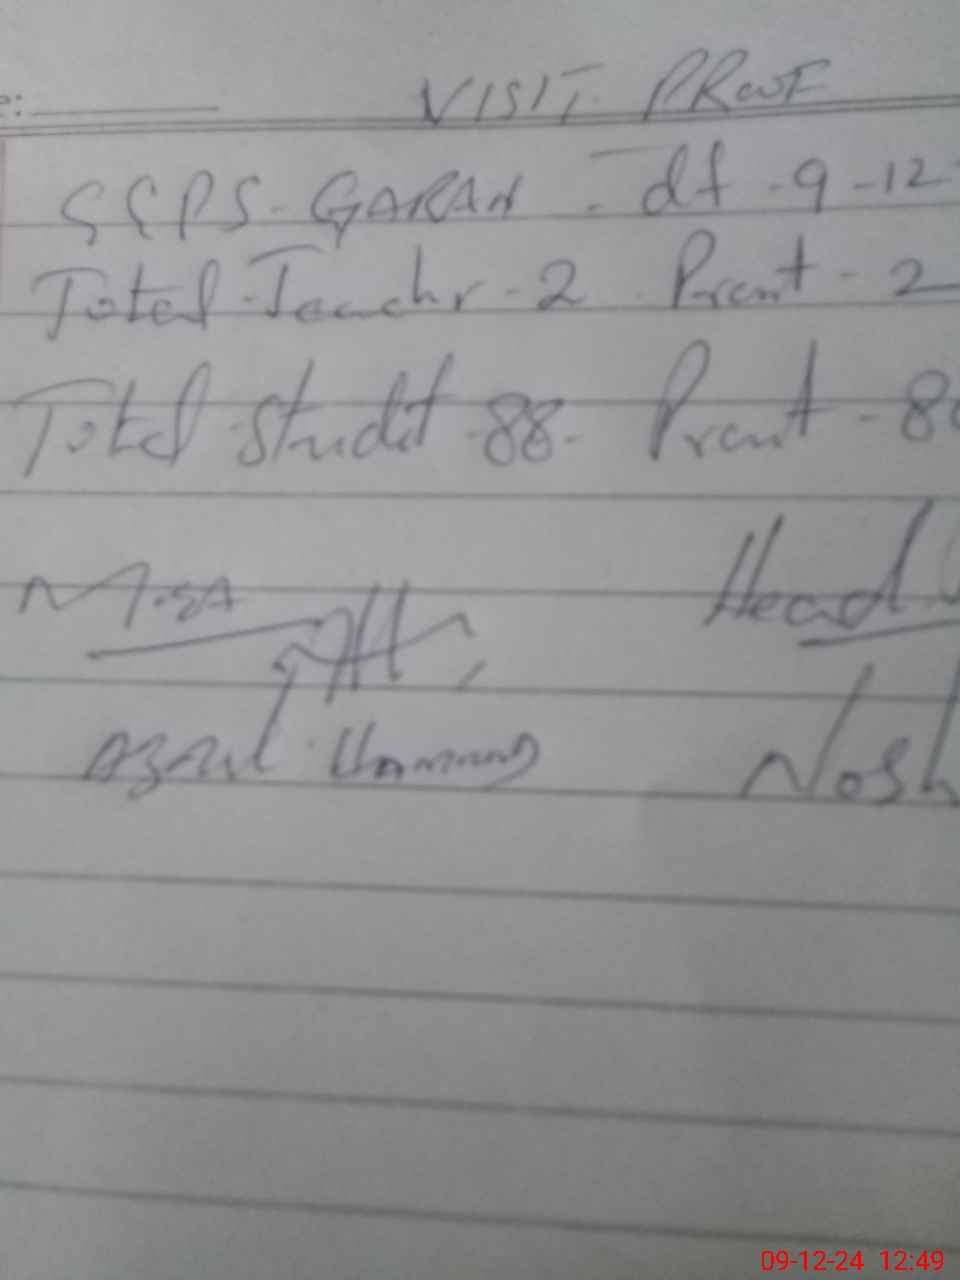 e:
VISIT PROOF
GGPS - GARAN - dt - 9 - 12
Total Teachr - 2 Prent - 2
Total Studt - 88 - Prent - 8
Head
Nosh
09-12-24 12:49